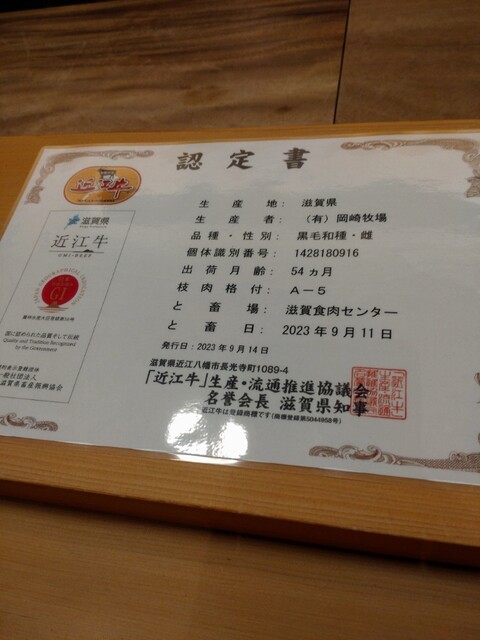 認定書
近江牛
滋賀県
近江牛
OMI-BEEF
GI
農林水産大臣登録第56号
国に認められた品質そして伝統
Quality and Tradition Recognized
by the Government
生産地: 滋賀県
生産者: (有) 岡崎牧場
品種・性別: 黒毛和種・雌
個体識別番号: 1428180916
出荷月齢: 54ヵ月
枝肉格付: A-5
と畜場: 滋賀食肉センター
と畜日: 2023年9月11日
発行日:2023年9月14日
滋賀県近江八幡市長光寺町1089-4
「近江牛」生産・流通推進協議会
名誉会長 滋賀県知事
近江牛は登録商標です(商標登録第5044958号)
一般社団法人
滋賀県畜産振興協会